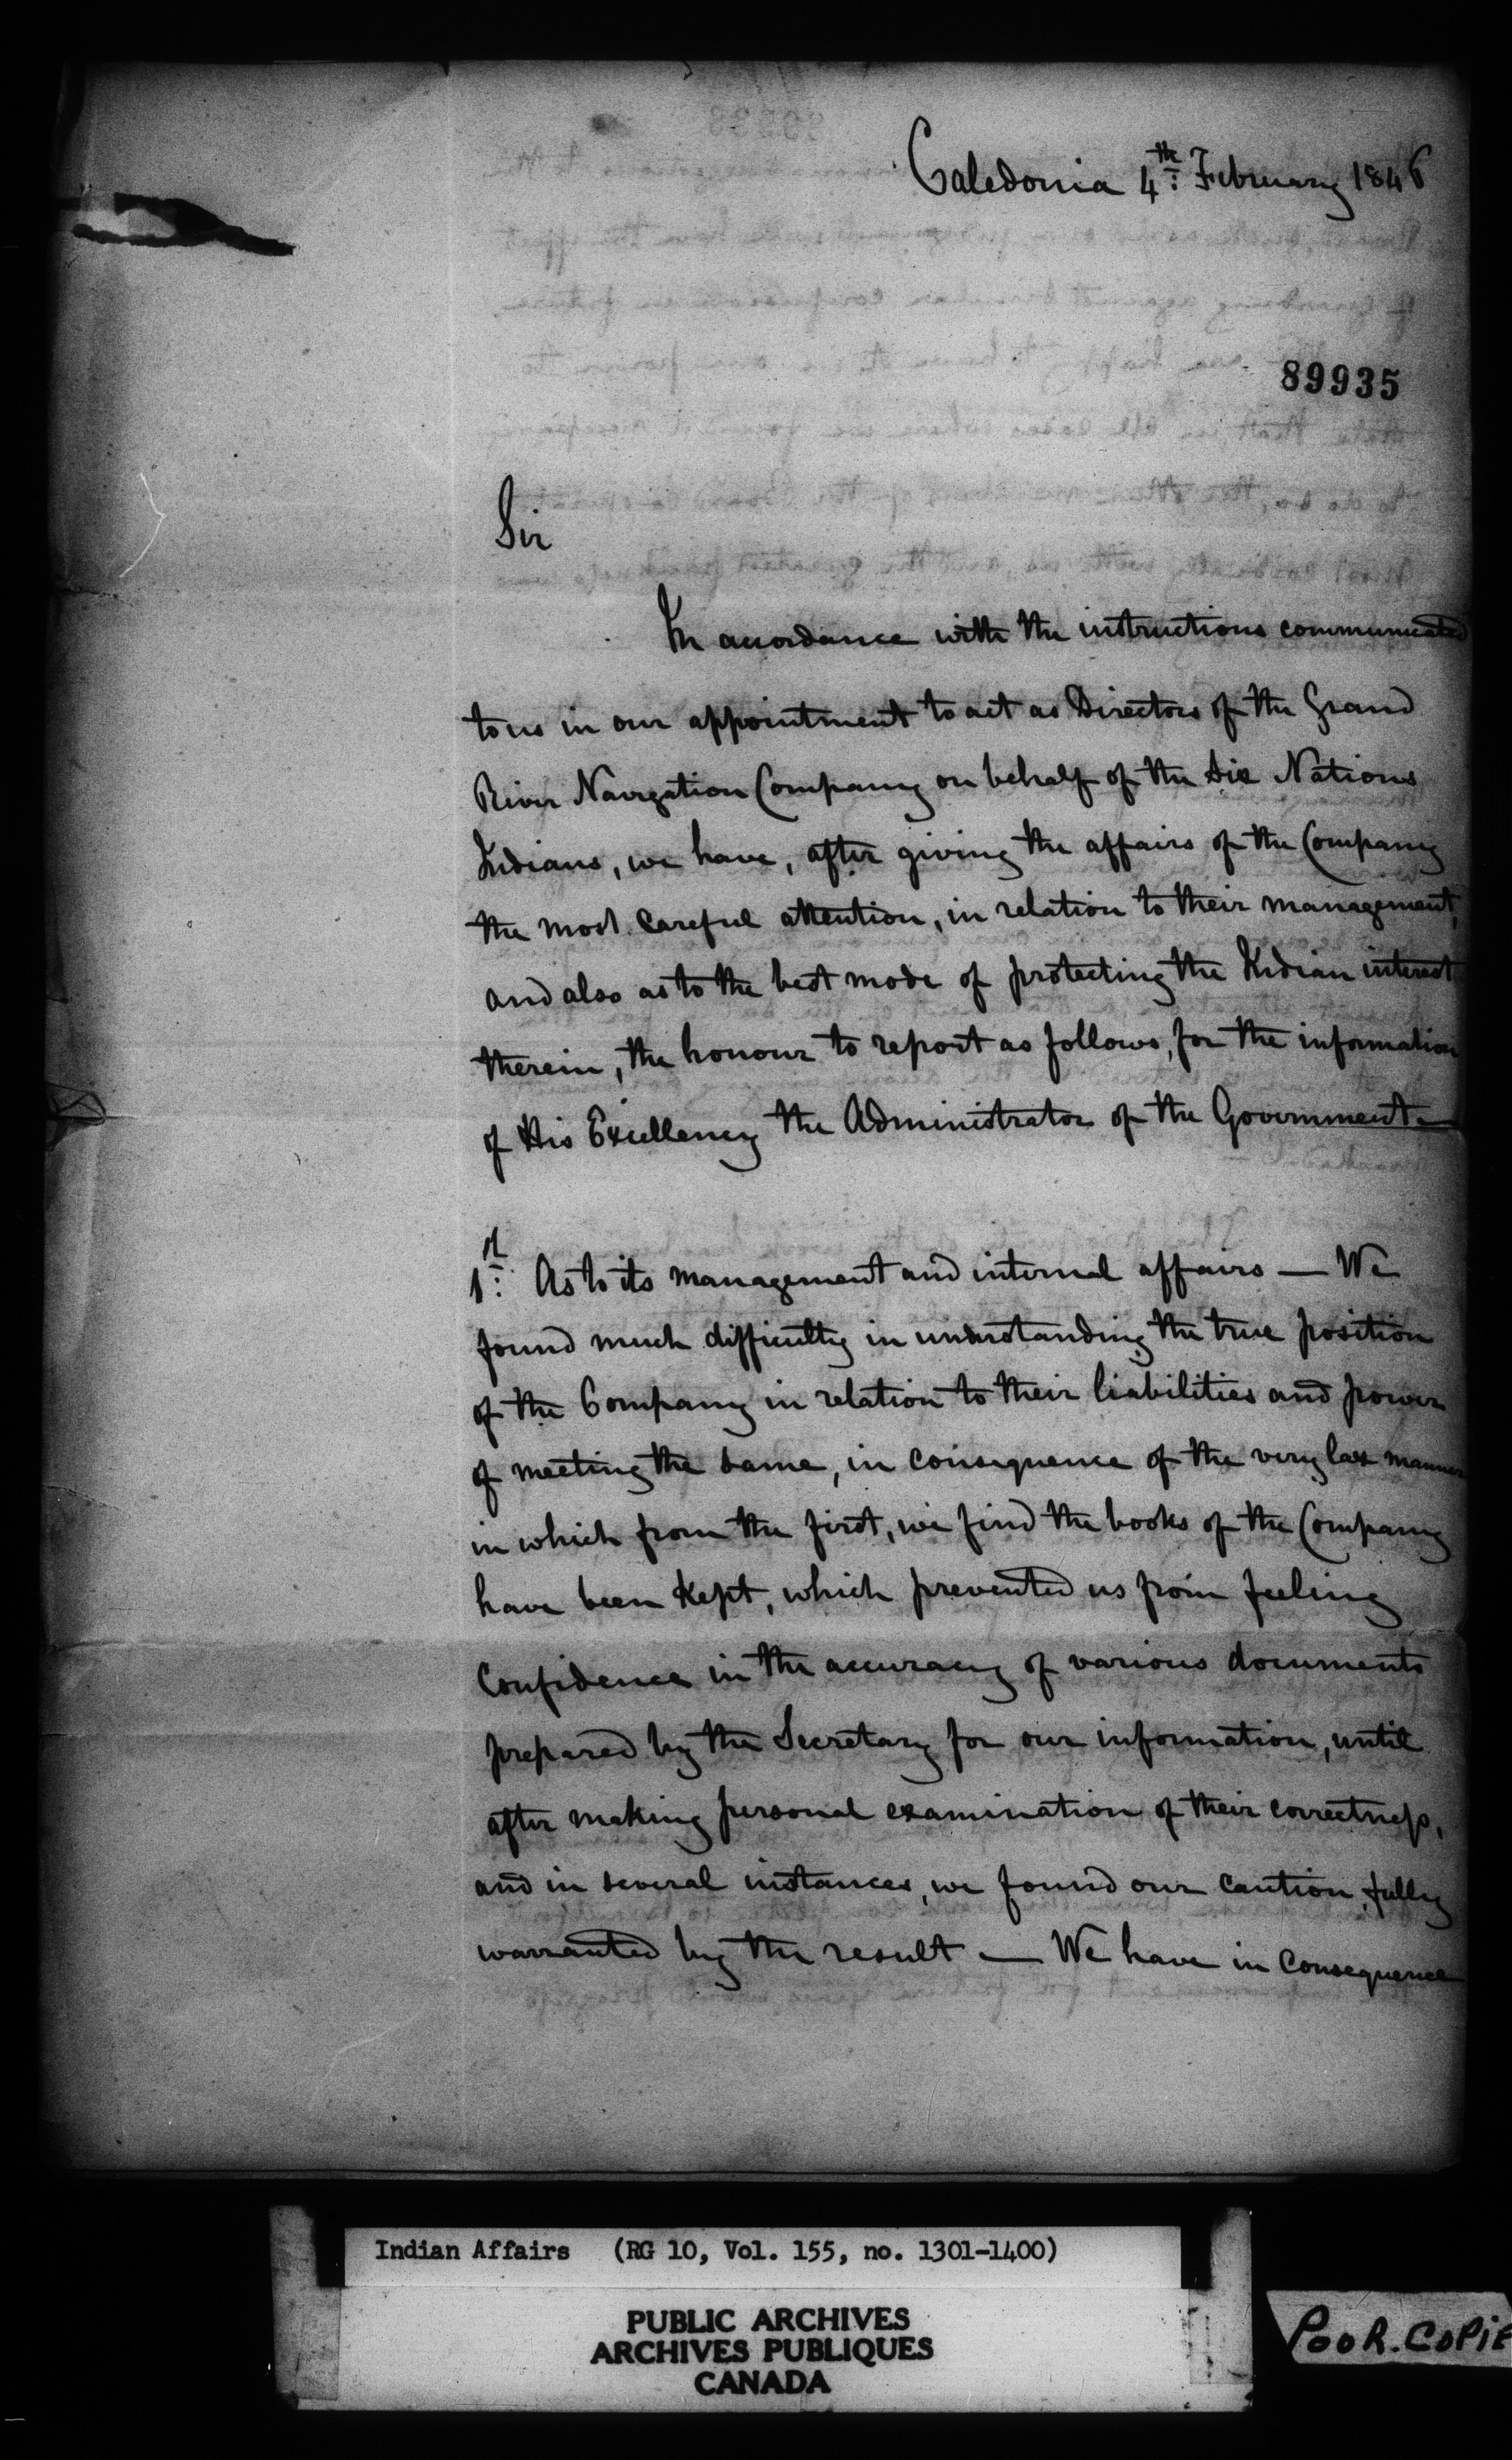 Caledonia 4th: February 1846
89935
Sir
In accordance with the instructions communicated
to us in our appointment to act as Directors of the Grand
River Navigation Company on behalf of the Six Nations
Indians, we have, after giving the affairs of the Company
the most careful attention, in relation to their management,
and also as to the best mode of protecting the Indian interest
therein, the honour to report as follows, for the information
of His Excellency the Administrator of the Government—
1st: As to its management and internal affairs — We
found much difficulty in understanding the true position
of the Company in relation to their liabilities and power
of meeting the same, in consequence of the very lax manner
in which from the first, we find the books of the Company
have been kept, which prevented us from feeling
Confidence in the accuracy of various documents
prepared by the Secretary for our information, until
after making personal examination of their correctness,
and in several instances, we found our caution fully
warranted by the result — We have in Consequence
Indian Affairs (RG 10, Vol. 155, no. 1301-1400)
PUBLIC ARCHIVES
ARCHIVES PUBLIQUES
CANADA
POOR.COPIE